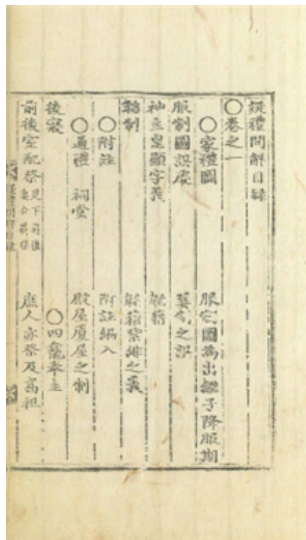 疑禮問解目録
○卷之一
○家禮圖 服圖為出繼子降服期
服制圖誤處 之誤
神主皇顯字義
韜制 韜藉紫緋之義
○附註 附註編入
○通禮 祠堂 殿屋厦屋之制
後寢 ○四龕奉主
前後室配祭 庶人亦祭及高祖